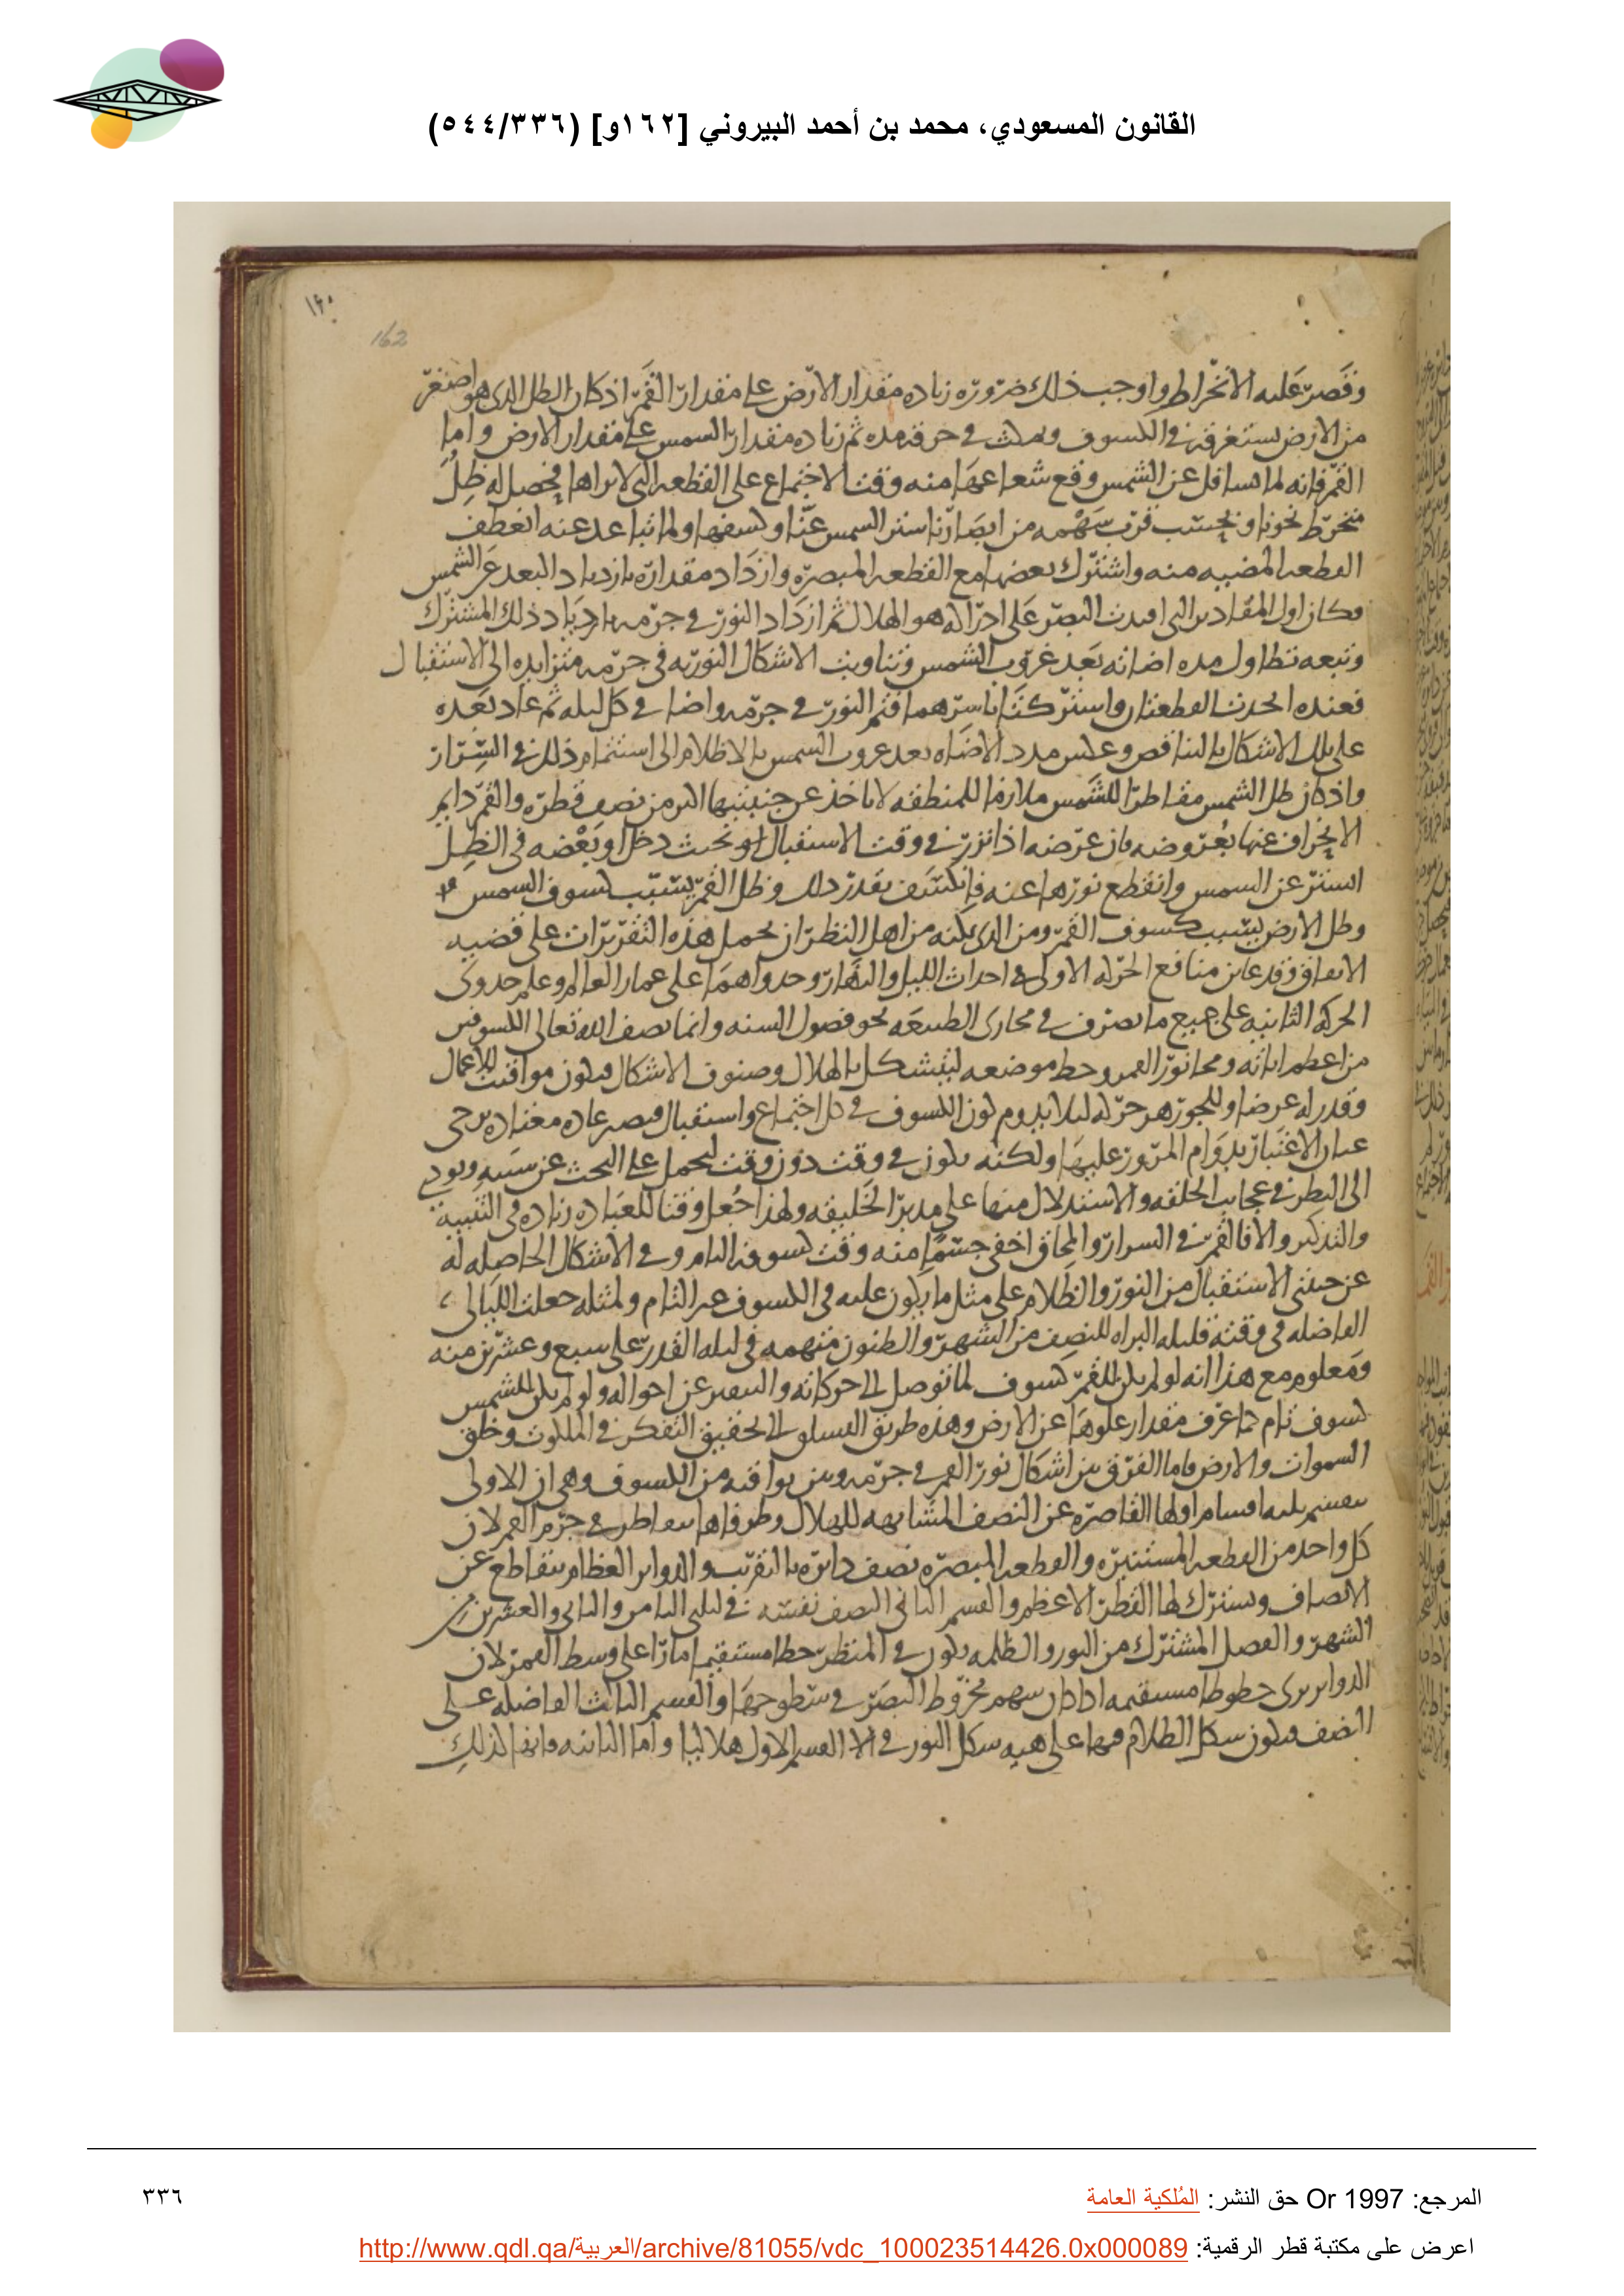 القانون المسعودي، محمد بن أحمد البيروني [١٦٢و] (٥٤٤/٣٣٦)
١٦٠
162
وقصر عليه الانخراط واوجب ذلك ضروره زياده مقدار الارض على مقدار القمر اذ كان الظل الذى هو اصغر
من الارض يستغرقه فى الكسوف ويمكث فى خرقه مده ثم زياده مقدار الشمس على مقدار الارض واما
القمر فانه لما تسافل عن الشمس وقع شعاعها منه وقت الاجتماع على القطعه التى لا نراها فيحصل له ظل
منخرط نحونا وبحسب قرب سهمه من ابصارنا ستر الشمس عنا وكسفها ولما تباعد عنه انعطف
القطعه المضيه منه واشترك بعضها مع القطعه المبصره وازداد مقداره بازدياد البعد عن الشمس
وكان اول المقادير التى البصر على ادراكه هو الهلال ثم ازداد النور فى جرمه بازدياد ذلك المشترك
وتبعه تطاول مده اضاته بعد غروب الشمس وتناوبت الاشكال النوريه فى جرمه متزايده الى الاستقبال
فعنده اتحدت القطعتان واشتركتا باسرهما فتم النور فى جرمه واضا فى كل ليله ثم عاد بعده
على تلك الاشكال بالتناقص وعكس مدد الاضاه بعد غروب الشمس بالاظلام الى استتمام ذلك فى السرار
واذ كان ظل الشمس مقاطرا للشمس ملازما للمنطقه لا ياخذ عن جنبيتيها اكثر من نصف قطره والقمر دايم
الانحراف عنها بعروضه فان عرضه اذا نزر فى وقت الاستقبال او بحيث دخل او بعضه فى الظل
استتر عن الشمس وانقطع نورها عنه فانكسف بقدر ذلك وظل القمر بسبب كسوف الشمس
وظل الارض بسبب كسوف القمر ومن الذى يمكنه من اهل النظر ان يحمل هذه التقريرات على قضيه
الاتفاق وقد عاين منافع الحركه الاولى فى احداث الليل والنهار وجدواهما على عمار العالم وعلم جدوى
الحركه الثانيه على جميع ما تصرف فى مجارى الطبيعه نحو فصول السنه وانما نصف الله تعالى الكسوفين
من اعظم اياته ومحا نور القمر وحط موضعه ليتشكل بالهلال وصنوف الاشكال فيكون مواقيت للاعمال
وقدر له عرضا وللجوزهر حركه ليلا يدوم كون الكسوف فى كل اجتماع واستقبال فيصير عاده معتاده
الاعتبار بدوام المرور عليها ولكنه يكون فى وقت دون وقت ليحمل على البحث عن سببه ويودى
الى النظر فى عجايب الخلقه والاستدلال منها على مدبر الخليقه ولهذا جعل وقتا للعباده زياده فى التنبيه
والتذكير والا فالقمر فى السرار والمحاق اخفى جسما منه وقت كسوفه التام وفى الاشكال الحاصله له
عن جنبتى الاستقبال من النور والظلام على مثل ما يكون عليه فى الكسوف غير التام ولمثله جعلت الليالى
الفاضله فى وقته فليله البراه للنصف من الشهر والظنون متهمه فى ليله القدر على سبع وعشرين منه
ومعلوم مع هذا انه لو لم يكن للقمر كسوف لما توصل الى حركاته والتعبير عن احواله ولو لم يكن للشمس
كسوف تام لما عرف مقدار علوها عن الارض وهذه طريق السلوك الى تحقيق التفكر فى الملكوت وخلق
السموات والارض فاما الفرق بين اشكال نور القمر فى جرمه وبين بواقيه من الكسوف وهى ان الاولى
تنقسم بثلثه اقسام اولها القاصره عن النصف المشابهه للهلال وطرفاها يتقاطر فى جرم القمر لان
كل واحد من القطعه المستنيره والقطعه المبصره نصف دايره بالتقريب والدواير العظام تتقاطع عن
الانصاف ويشترك لها القطر الاعظم والقسم الثانى النصف نفسه فى ليلتى الثامن والثانى والعشرين من
الشهر والفصل المشترك من النور والظلمه يكون فى المنظر خطا مستقيما مارا على وسط القمر لان
الدواير ترى خطوطا مستقيمه اذا كان سهم مخروط البصر فى سطوحها والقسم الثالث الفاضله على
النصف فيكون شكل الظلام فيها على هيه شكل النور فى القسم الاول هلاليا واما الثانيه فانها كذلك
المرجع: Or 1997 حق النشر: المُلكية العامة
٣٣٦
اعرض على مكتبة قطر الرقمية: http://www.qdl.qa/العربية/archive/81055/vdc_100023514426.0x000089